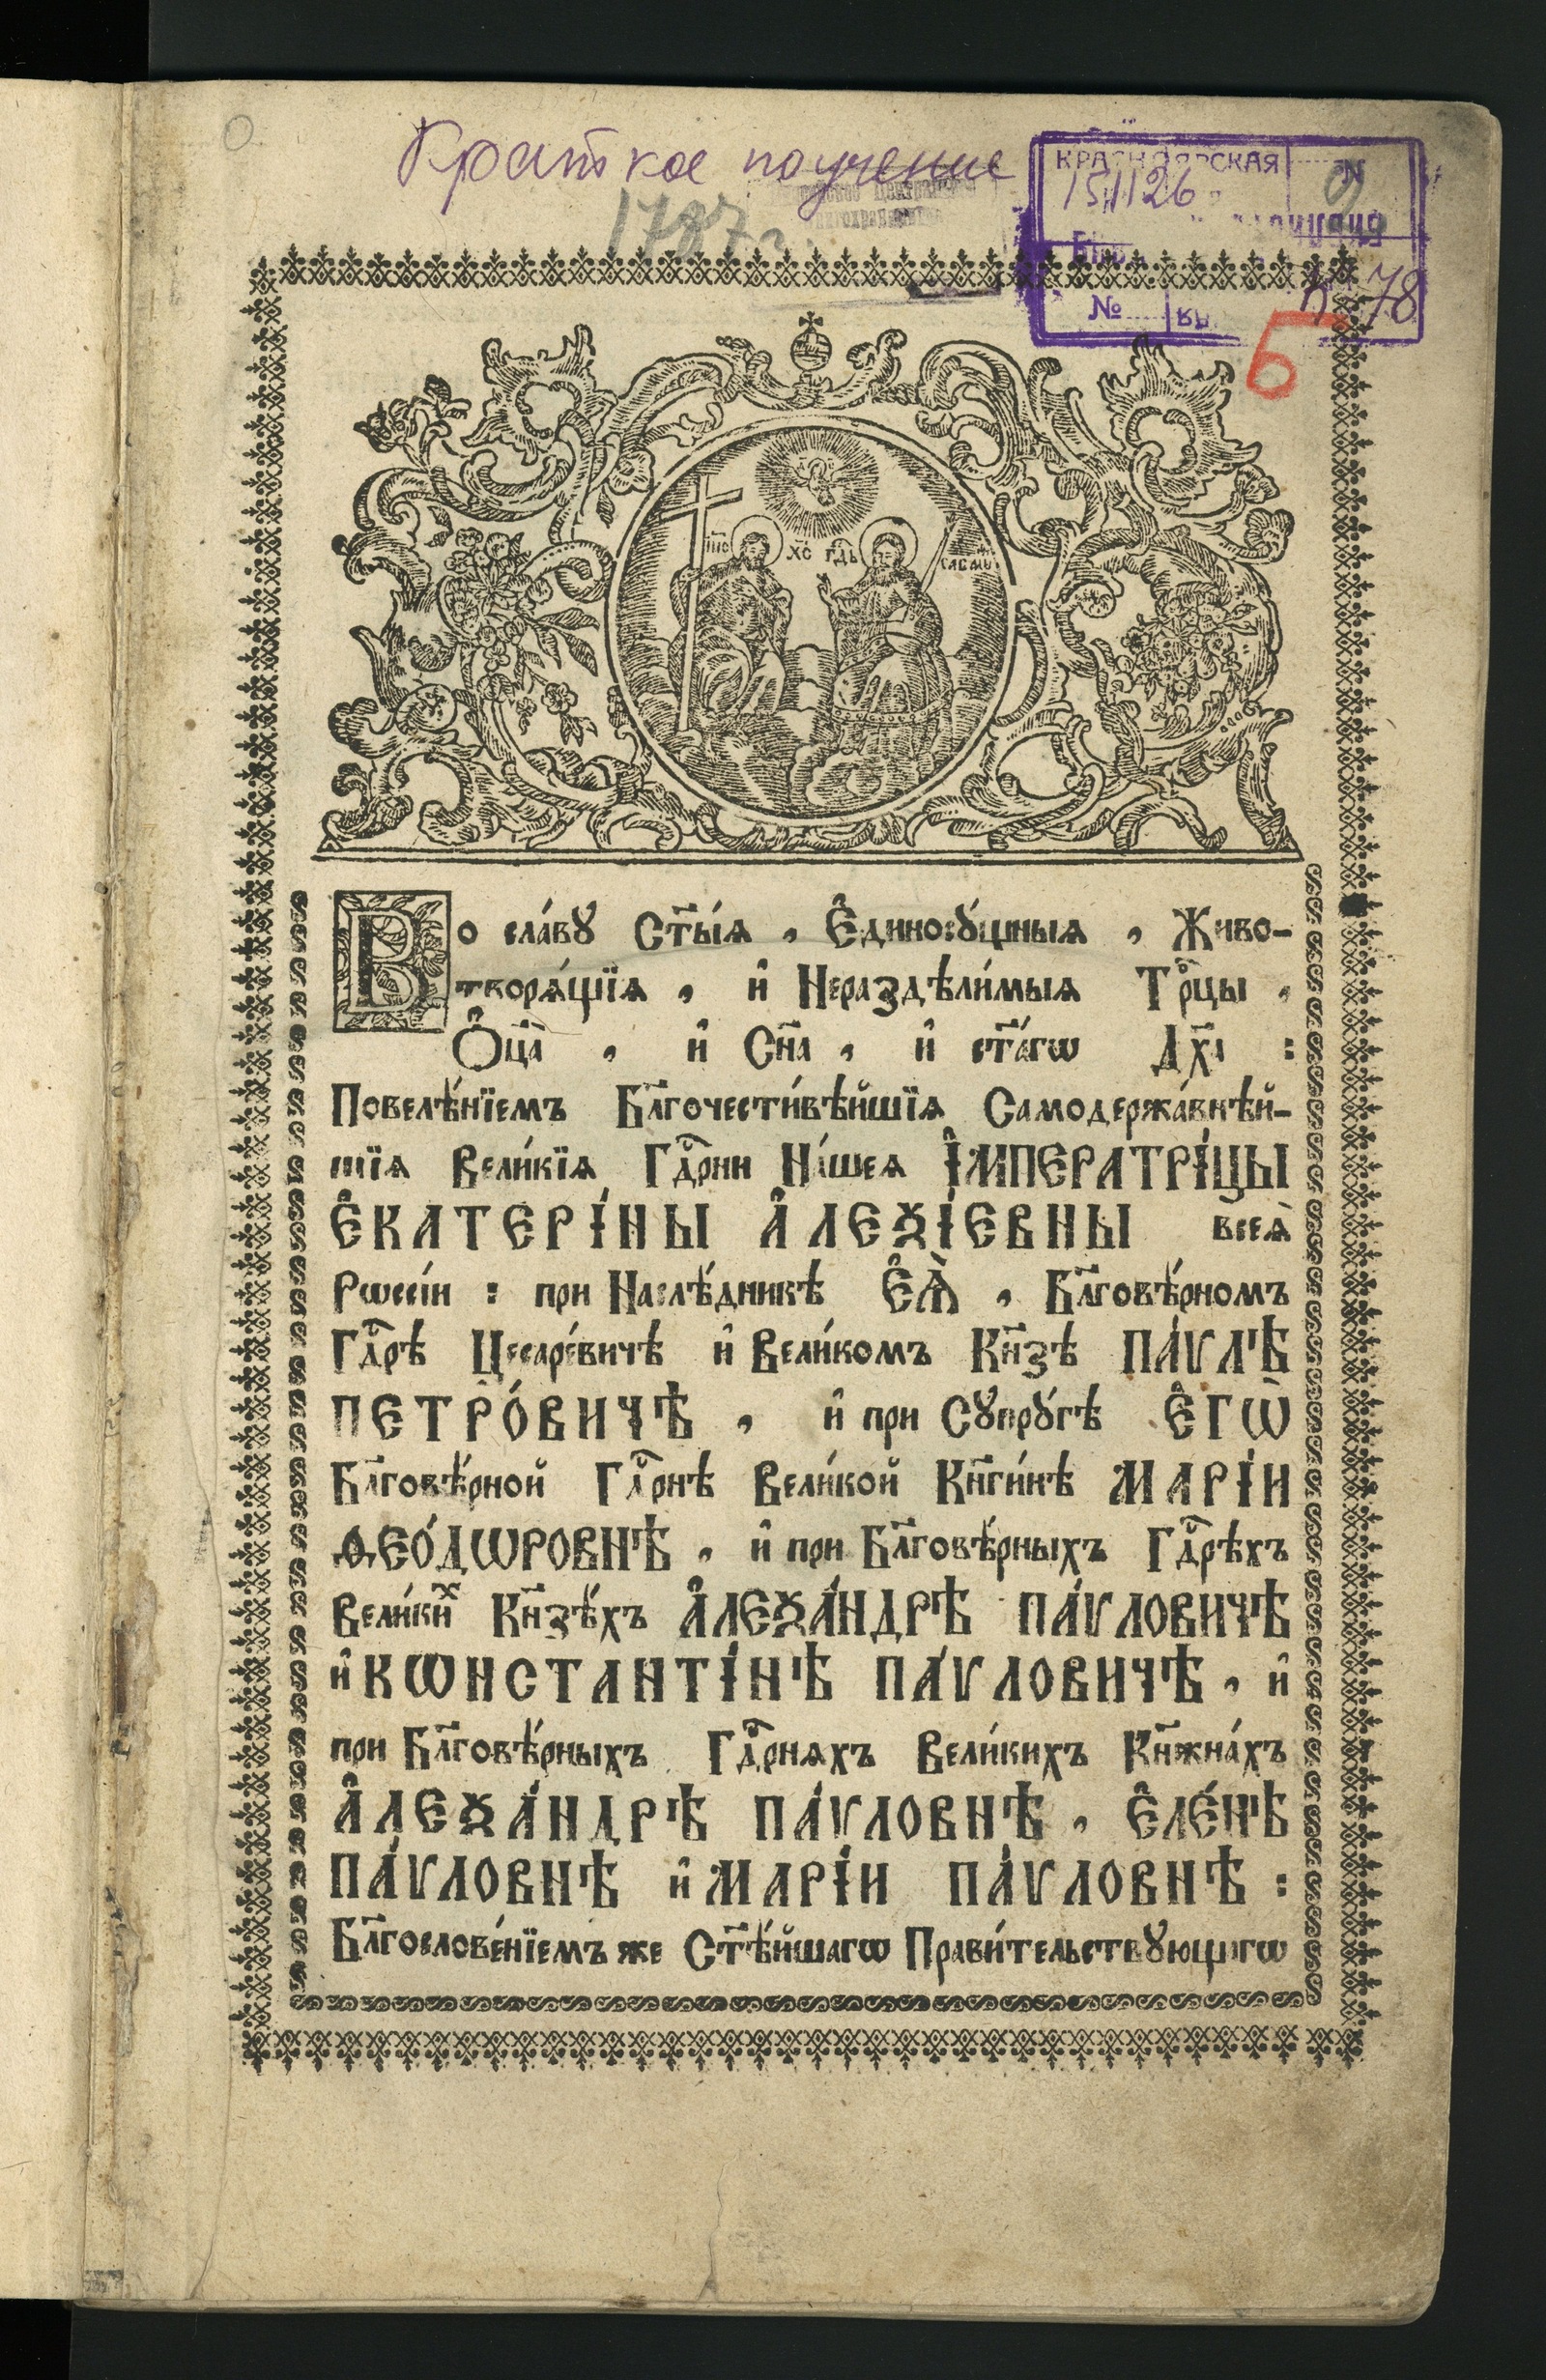 Краткое поучение
1787 г.
КРАСНОЯРСКАЯ N
15/126
№
78
Б
І҃ИС ХС҃ ГДⷭ҇Ь САВАѠ
Во сла́вꙋ Ст҃ы́ѧ , Є҆диносꙋ́щныѧ , Живо-
творѧ́щїѧ , и҆ Нераздѣли́мыѧ Трⷪ҇цы ,
Ѻ҆ц҃а̀ , и҆ Сн҃а , и҆ ст҃а́гѡ Дх҃а :
Повелѣ́нїемъ Бл҃гочести́вѣйшїѧ Самодержа́внѣй-
шїѧ Вели́кїѧ Гдⷭ҇рни На́шеѧ І҆МПЕРАТРІ́ЦЫ
Є҆КАТЕРІ́НЫ А҆ЛЕѮІ́ЕВНЫ всеѧ̀
Рѡссі́и : при Наслѣ́дникѣ Є҆Ѧ̀ , Бл҃говѣ́рномъ
Гдⷭ҇рѣ Цесаре́вичѣ и҆ Вели́комъ Кн҃зѣ ПА́ѴЛѢ
ПЕТРО́ВИЧѢ , и҆ при Сꙋпрꙋ́гѣ Є҆ГѠ̀
Бл҃говѣ́рной Гдⷭ҇рнѣ Вели́кой Кн҃ги́нѣ МАРІ́И
ѲЕО́ДѠРОВНѢ , и҆ при Бл҃говѣ́рныхъ Гдⷭ҇рѣхъ
Вели́киⷯ Кн҃зѣ́хъ А҆ЛЕѮА́НДРѢ ПА́ѴЛОВИЧѢ
и҆ КѠНСТАНТІ́НѢ ПА́ѴЛОВИЧѢ , и҆
при Бл҃говѣ́рныхъ Гдⷭ҇рнѧхъ Вели́кихъ Кн҃жна́хъ
А҆ЛЕѮА́НДРѢ ПА́ѴЛОВНѢ , Є҆ЛЕ́НѢ
ПА́ѴЛОВНѢ и҆ МАРІ́И ПА́ѴЛОВНѢ :
Бл҃гослове́нїемъ же Ст҃ѣ́йшагѡ Прави́тельствꙋющагѡ